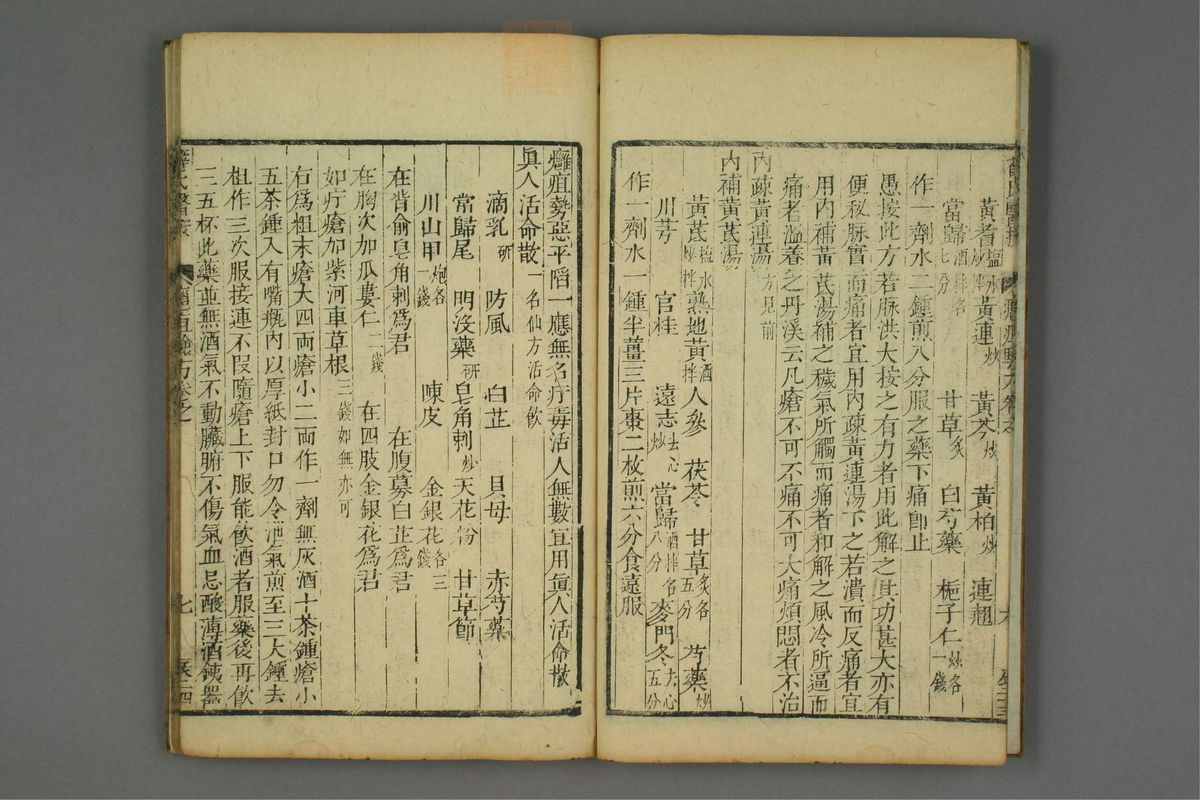 黃耆鹽水炒拌 黃連炒 黃芩炒 黃柏炒 連翹
當歸酒拌各七分 甘草炙 白芍藥 梔子仁炒各一錢
作一劑水二鍾煎八分服之藥下痛卽止
愚按此方若脉洪大按之有力者用此解之其功甚大亦有
便秘脉實而痛者宜用內疎黃連湯下之若潰而反痛者宜
用內補黃芪湯補之穢氣所觸而痛者和解之風冷所逼而
痛者溫養之丹溪云凡瘡不可不痛不可大痛煩悶者不治
內疎黃連湯方見前
內補黃芪湯
黃芪鹽水炒拌 熟地黃酒拌 人參 茯苓 甘草炙各五分 芍藥炒
川芎 官桂 遠志去心炒 當歸酒拌各八分 麥門冬去心五分
作一劑水一鍾半薑三片棗二枚煎六分食遠服
癰疽勢惡平陷一應無名疔毒活人無數宜用眞人活命散
眞人活命散一名仙方活命飲
滴乳研 防風 白芷 貝母 赤芍藥
當歸尾 明沒藥研 皂角刺炒 天花粉 甘草節
川山甲炮各一錢 陳皮 金銀花各三錢
在背俞皂角刺爲君 在腹募白芷爲君
在胸次加瓜蔞仁二錢 在四肢金銀花爲君
如疔瘡加紫河車草根三錢如無亦可
右爲粗末瘡大四両瘡小二両作一劑無灰酒十茶鍾瘡小
五茶鍾入有嘴瓶內以厚紙封口勿令泄氣煎至三大鍾去
柤作三次服接連不叚隨瘡上下服能飮酒者服藥後再飮
三五杯此藥並無酒氣不動臟腑不傷氣血忌酸薄酒鐵器
七